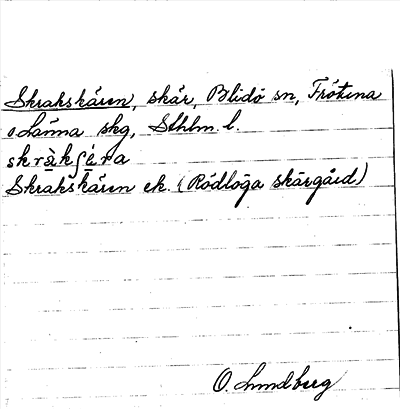 Skrakskären, skär, Blidö sn, Frötuna
o Länna skg, Sthlm. l.
skrà̤kʃé̤ra
Skrakskären ek. (Rödlöga skärgård)
O. Lundberg